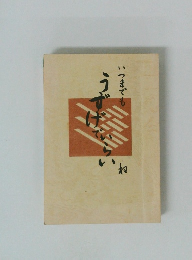 いつまでも
うずげでいらい
ね